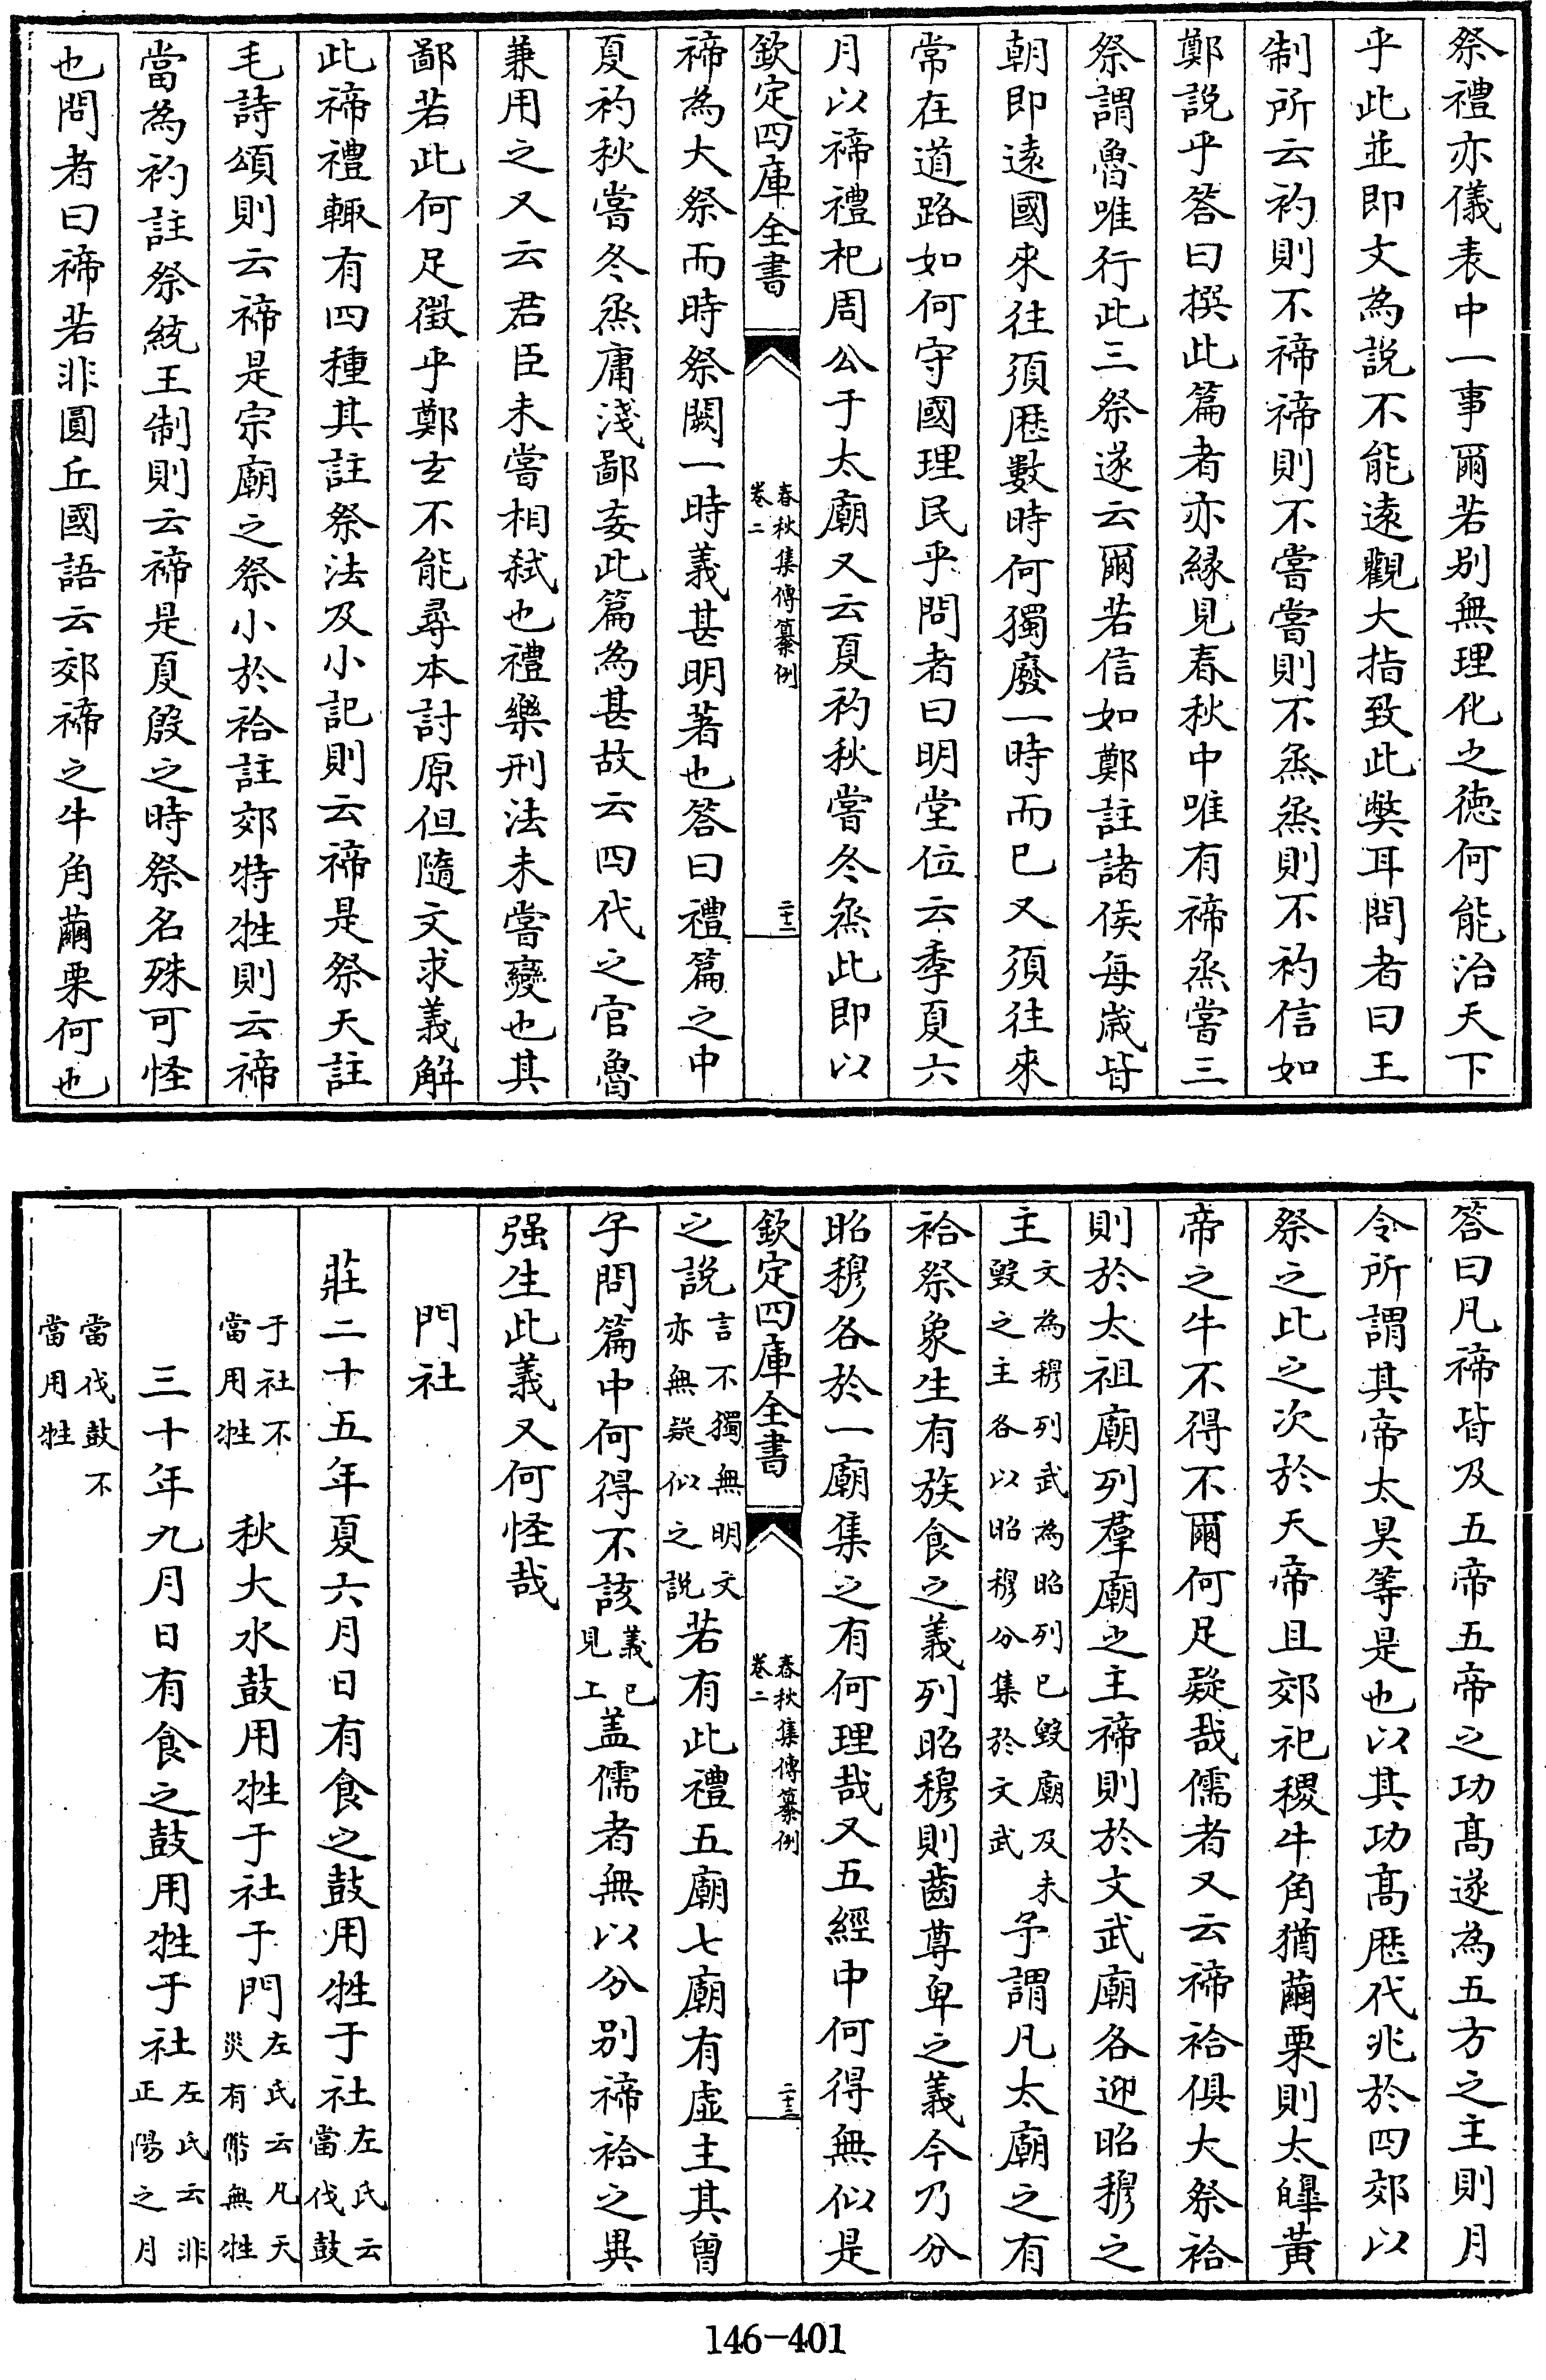 祭禮亦儀表中一事爾若别無理化之徳何能治天下
乎此並即文為説不能逺觀大指致此獘耳問者曰王
制所云礿則不禘禘則不嘗嘗則不烝烝則不礿信如
鄭説乎答曰撰此篇者亦縁見春秋中唯有禘烝嘗三
祭謂魯唯行此三祭遂云爾若信如鄭註諸侯每嵗皆
朝即逺國來往須厯數時何獨廢一時而已又須往來
常在道路如何守國理民乎問者曰明堂位云季夏六
月以禘禮祀周公于太廟又云夏礿秋嘗冬烝此即以
欽定四庫全書
春秋集傳纂例
卷二
二十二
禘為大祭而時祭闕一時義甚明著也答曰禮篇之中
夏礿秋嘗冬烝庸淺鄙妄此篇為甚故云四代之官魯
兼用之又云君臣未嘗相弑也禮樂刑法未嘗變也其
鄙若此何足徴乎鄭玄不能尋本討原但隨文求義解
此禘禮輙有四種其註祭法及小記則云禘是祭天註
毛詩頌則云禘是宗廟之祭小於祫註郊特牲則云禘
當為礿註祭統王制則云禘是夏殷之時祭名殊可怪
也問者曰禘若非圓丘國語云郊禘之牛角繭栗何也
答曰凡禘皆及五帝五帝之功髙遂為五方之主則月
令所謂其帝太昊等是也以其功髙厯代兆於四郊以
祭之比之次於天帝且郊祀稷牛角猶繭栗則太皥黃
帝之牛不得不爾何足疑哉儒者又云禘祫俱大祭祫
則於太祖廟列羣廟之主禘則於文武廟各迎昭穆之
主文為穆列武為昭列已毁廟及未毁之主各以昭穆分集於文武予謂凡太廟之有
祫祭象生有族食之義列昭穆則齒尊卑之義今乃分
昭穆各於一廟集之有何理哉又五經中何得無似是
欽定四庫全書
春秋集傳纂例
卷二
二十三
之説言不獨無明文亦無疑似之説若有此禮五廟七廟有虛主其曾
子問篇中何得不該義已見上盖儒者無以分别禘祫之異
强生此義又何怪哉
門社
莊二十五年夏六月日有食之鼓用牲于社左氏云當伐鼓
于社不當用牲　秋大水鼓用牲于社于門左氏云凡天災有幣無牲
三十年九月日有食之鼓用牲于社左氏云非正陽之月
當伐鼓不當用牲
146-401